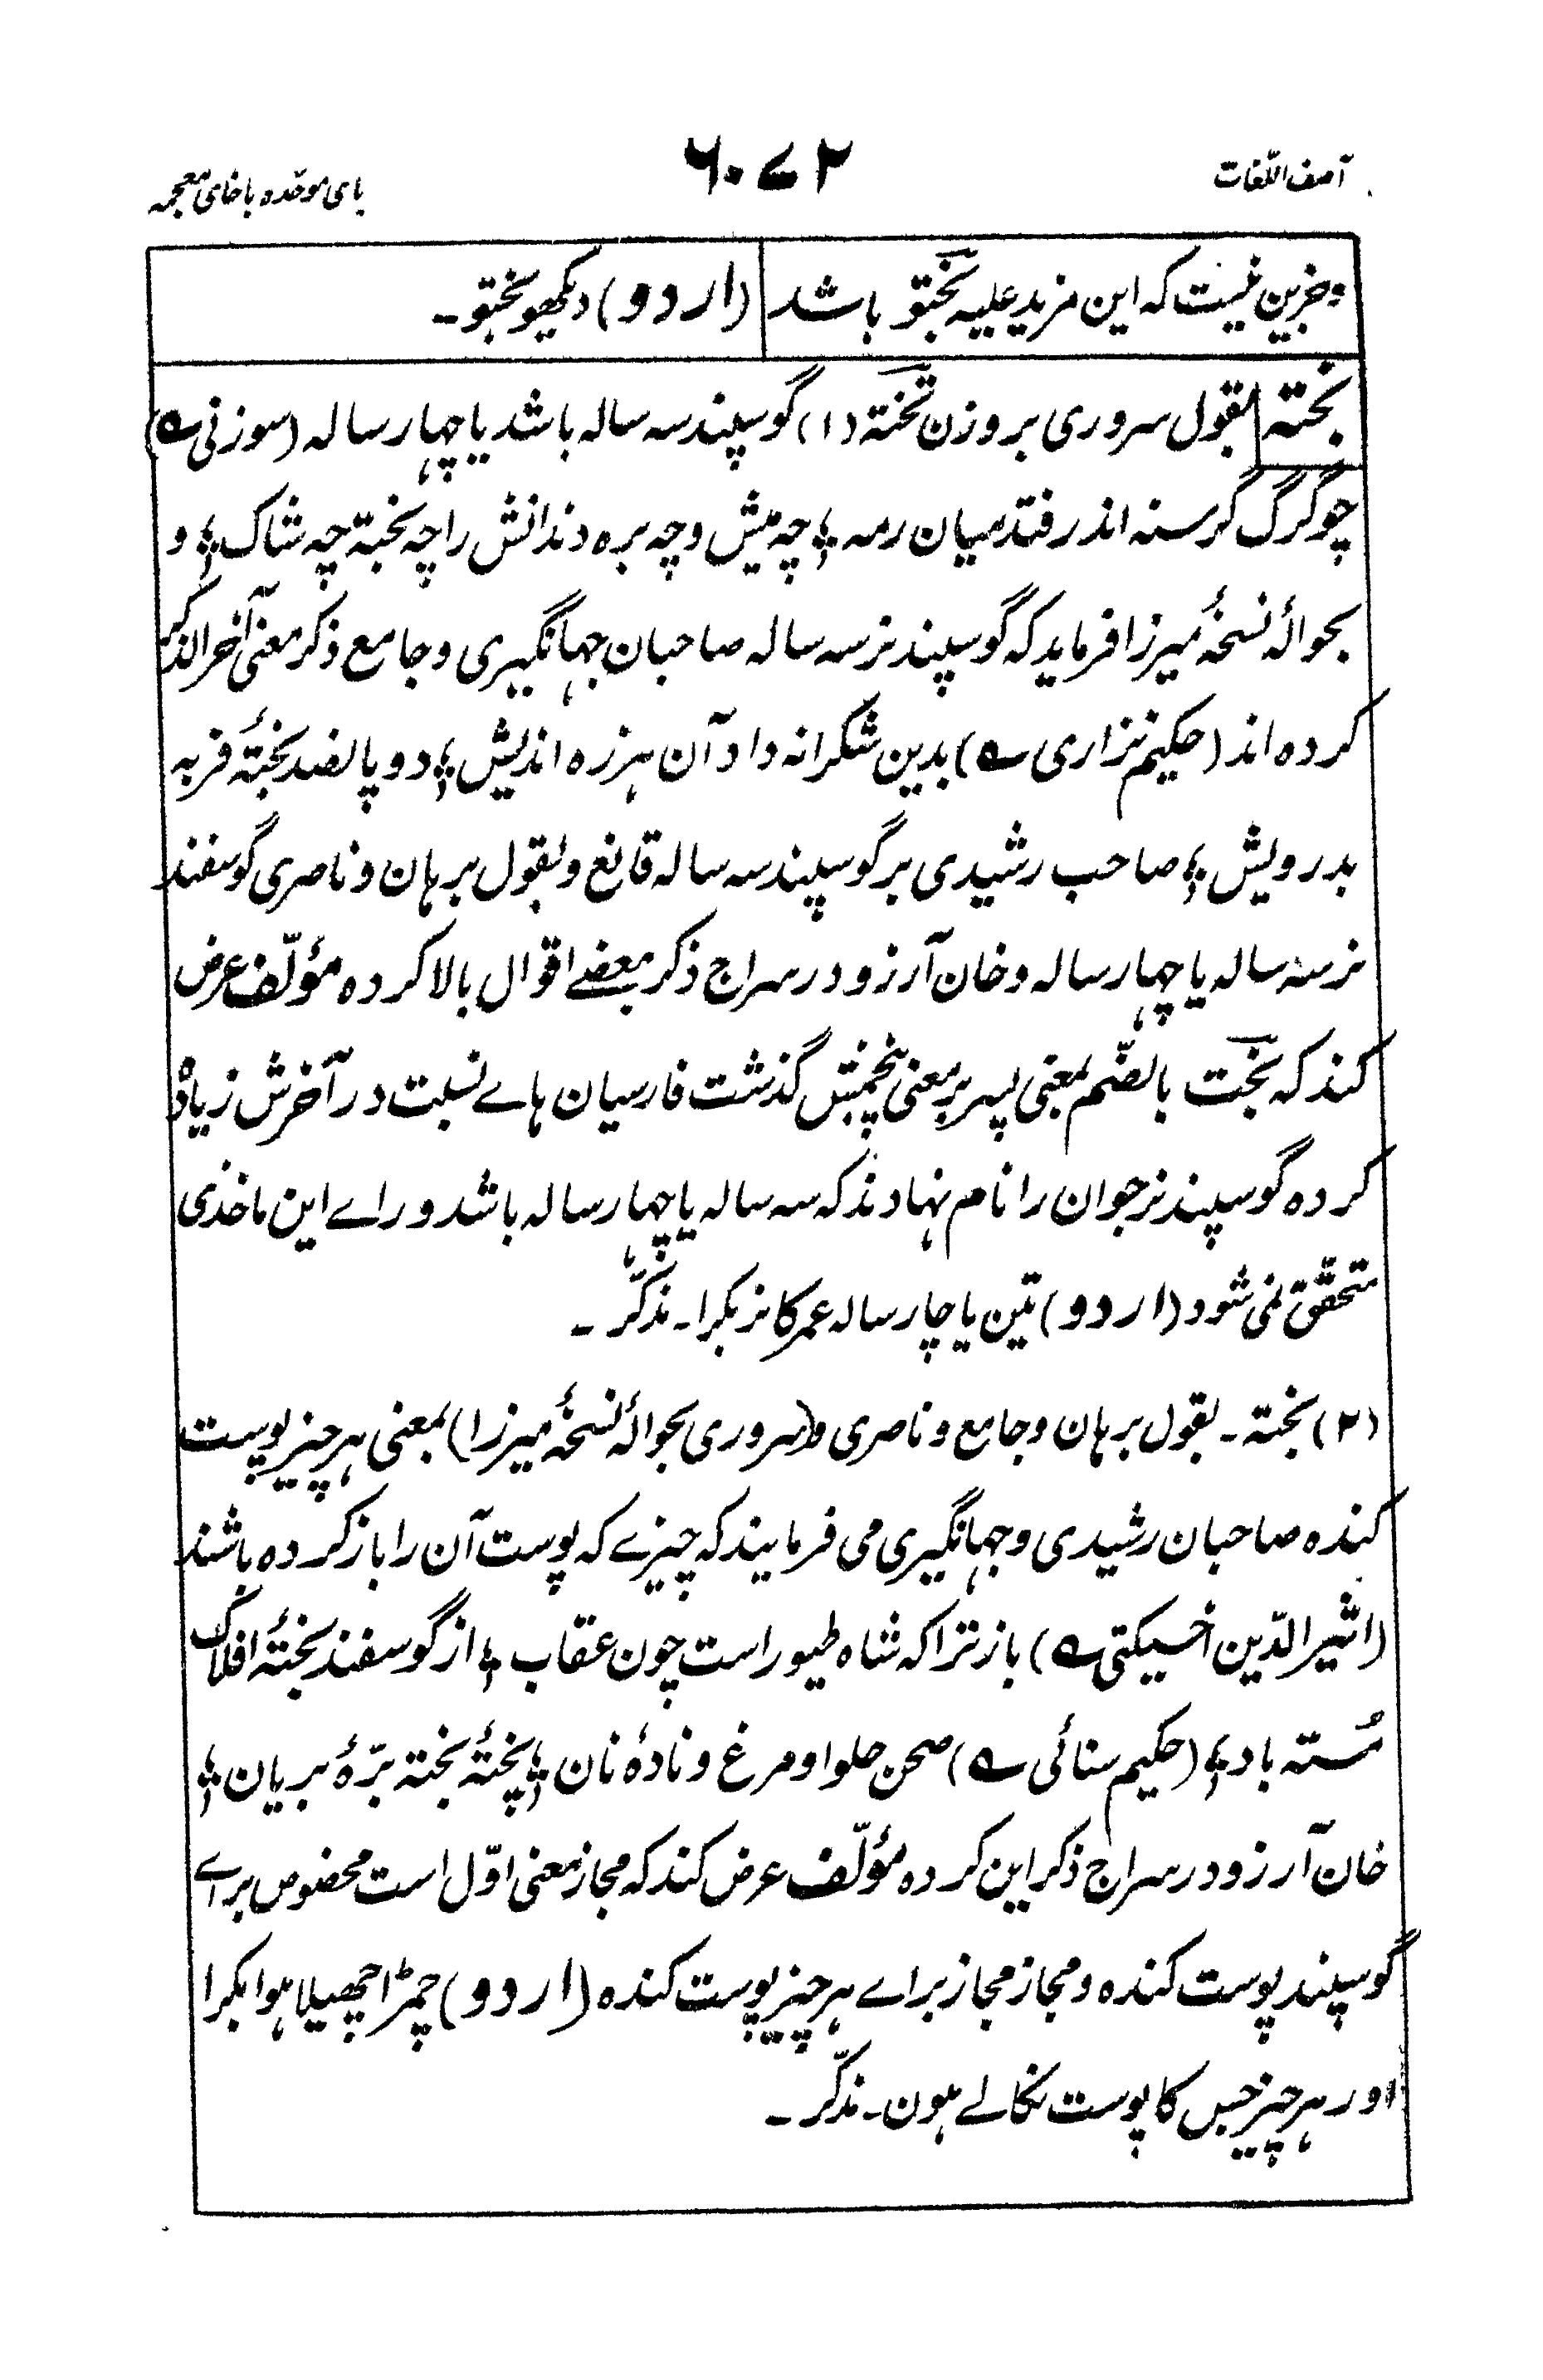 آصف اللّغات
۶۰۷۲
بای موحّده با خای معجمه
جزین نیست که این مزید علیه بختو باشد
(اردو) دیکھو بختو۔
بختہ بقول سروری بروزن تختہ (۱) گوسپند سه ساله باشد یا چہار ساله (سوزنی ؎)
چو گرگ گرسنه اندر فتد میان رمه ؛ چه میش و چه بره دندانش را چه بختہ چه شاک ؛ و
بحوالۂ نسخۂ میرزا فرماید که گوسپند نر سه ساله صاحبان جہانگیری و جامع ذکر معنی آخر الذکر
کرده اند (حکیم نزاری ؎) بدین شکرانه داد آن هرزه اندیش ؛ دو پانصد بختۂ فربه
بدرویش ؛ صاحب رشیدی بر گوسپند سه ساله قانع و بقول برہان و ناصری گوسفند
نر سه ساله یا چہار ساله و خان آرزو در سراج ذکر بعضے اقوال بالا کرده مؤلّف عرض
کند که بخت بالضّم بمعنی پسر بر معنی پنجمش گذشت فارسیان ہاے نسبت در آخرش زیاده
کرده گوسپند نر جوان را نام نہادند که سه ساله یا چہار ساله باشد وراے این ماخذی
متحقّق نمی شود (اردو) تین یا چار ساله عمر کا نر بکرا۔ مذکّر۔
(۲) بختہ۔ بقول برہان و جامع و ناصری و (سروری بحوالۂ نسخۂ میرزا) بمعنی ہر چیز پوست
کنده صاحبان رشیدی و جہانگیری می فرمایند که چیزے که پوست آن را باز کرده باشند
(اثیر الدّین اخسیکتی ؎) باز ترا که شاه طیور است چون عقاب ؛ از گوسفند بختۂ افلاک
مُسته باد ؛ (حکیم سنائی ؎) صحن حلوا و مرغ و نادۂ نان ؛ پختۂ بختہ برّۂ بریان ؛
خان آرزو در سراج ذکر این کرده مؤلّف عرض کند که مجاز معنی اوّل است مخصوص براے
گوسپند پوست کنده و مجاز مجاز براے ہر چیز پوست کنده (اردو) چمڑا چھیلا ہوا بکرا
اور ہر چیز جس کا پوست نکالے ہون۔ مذکّر۔